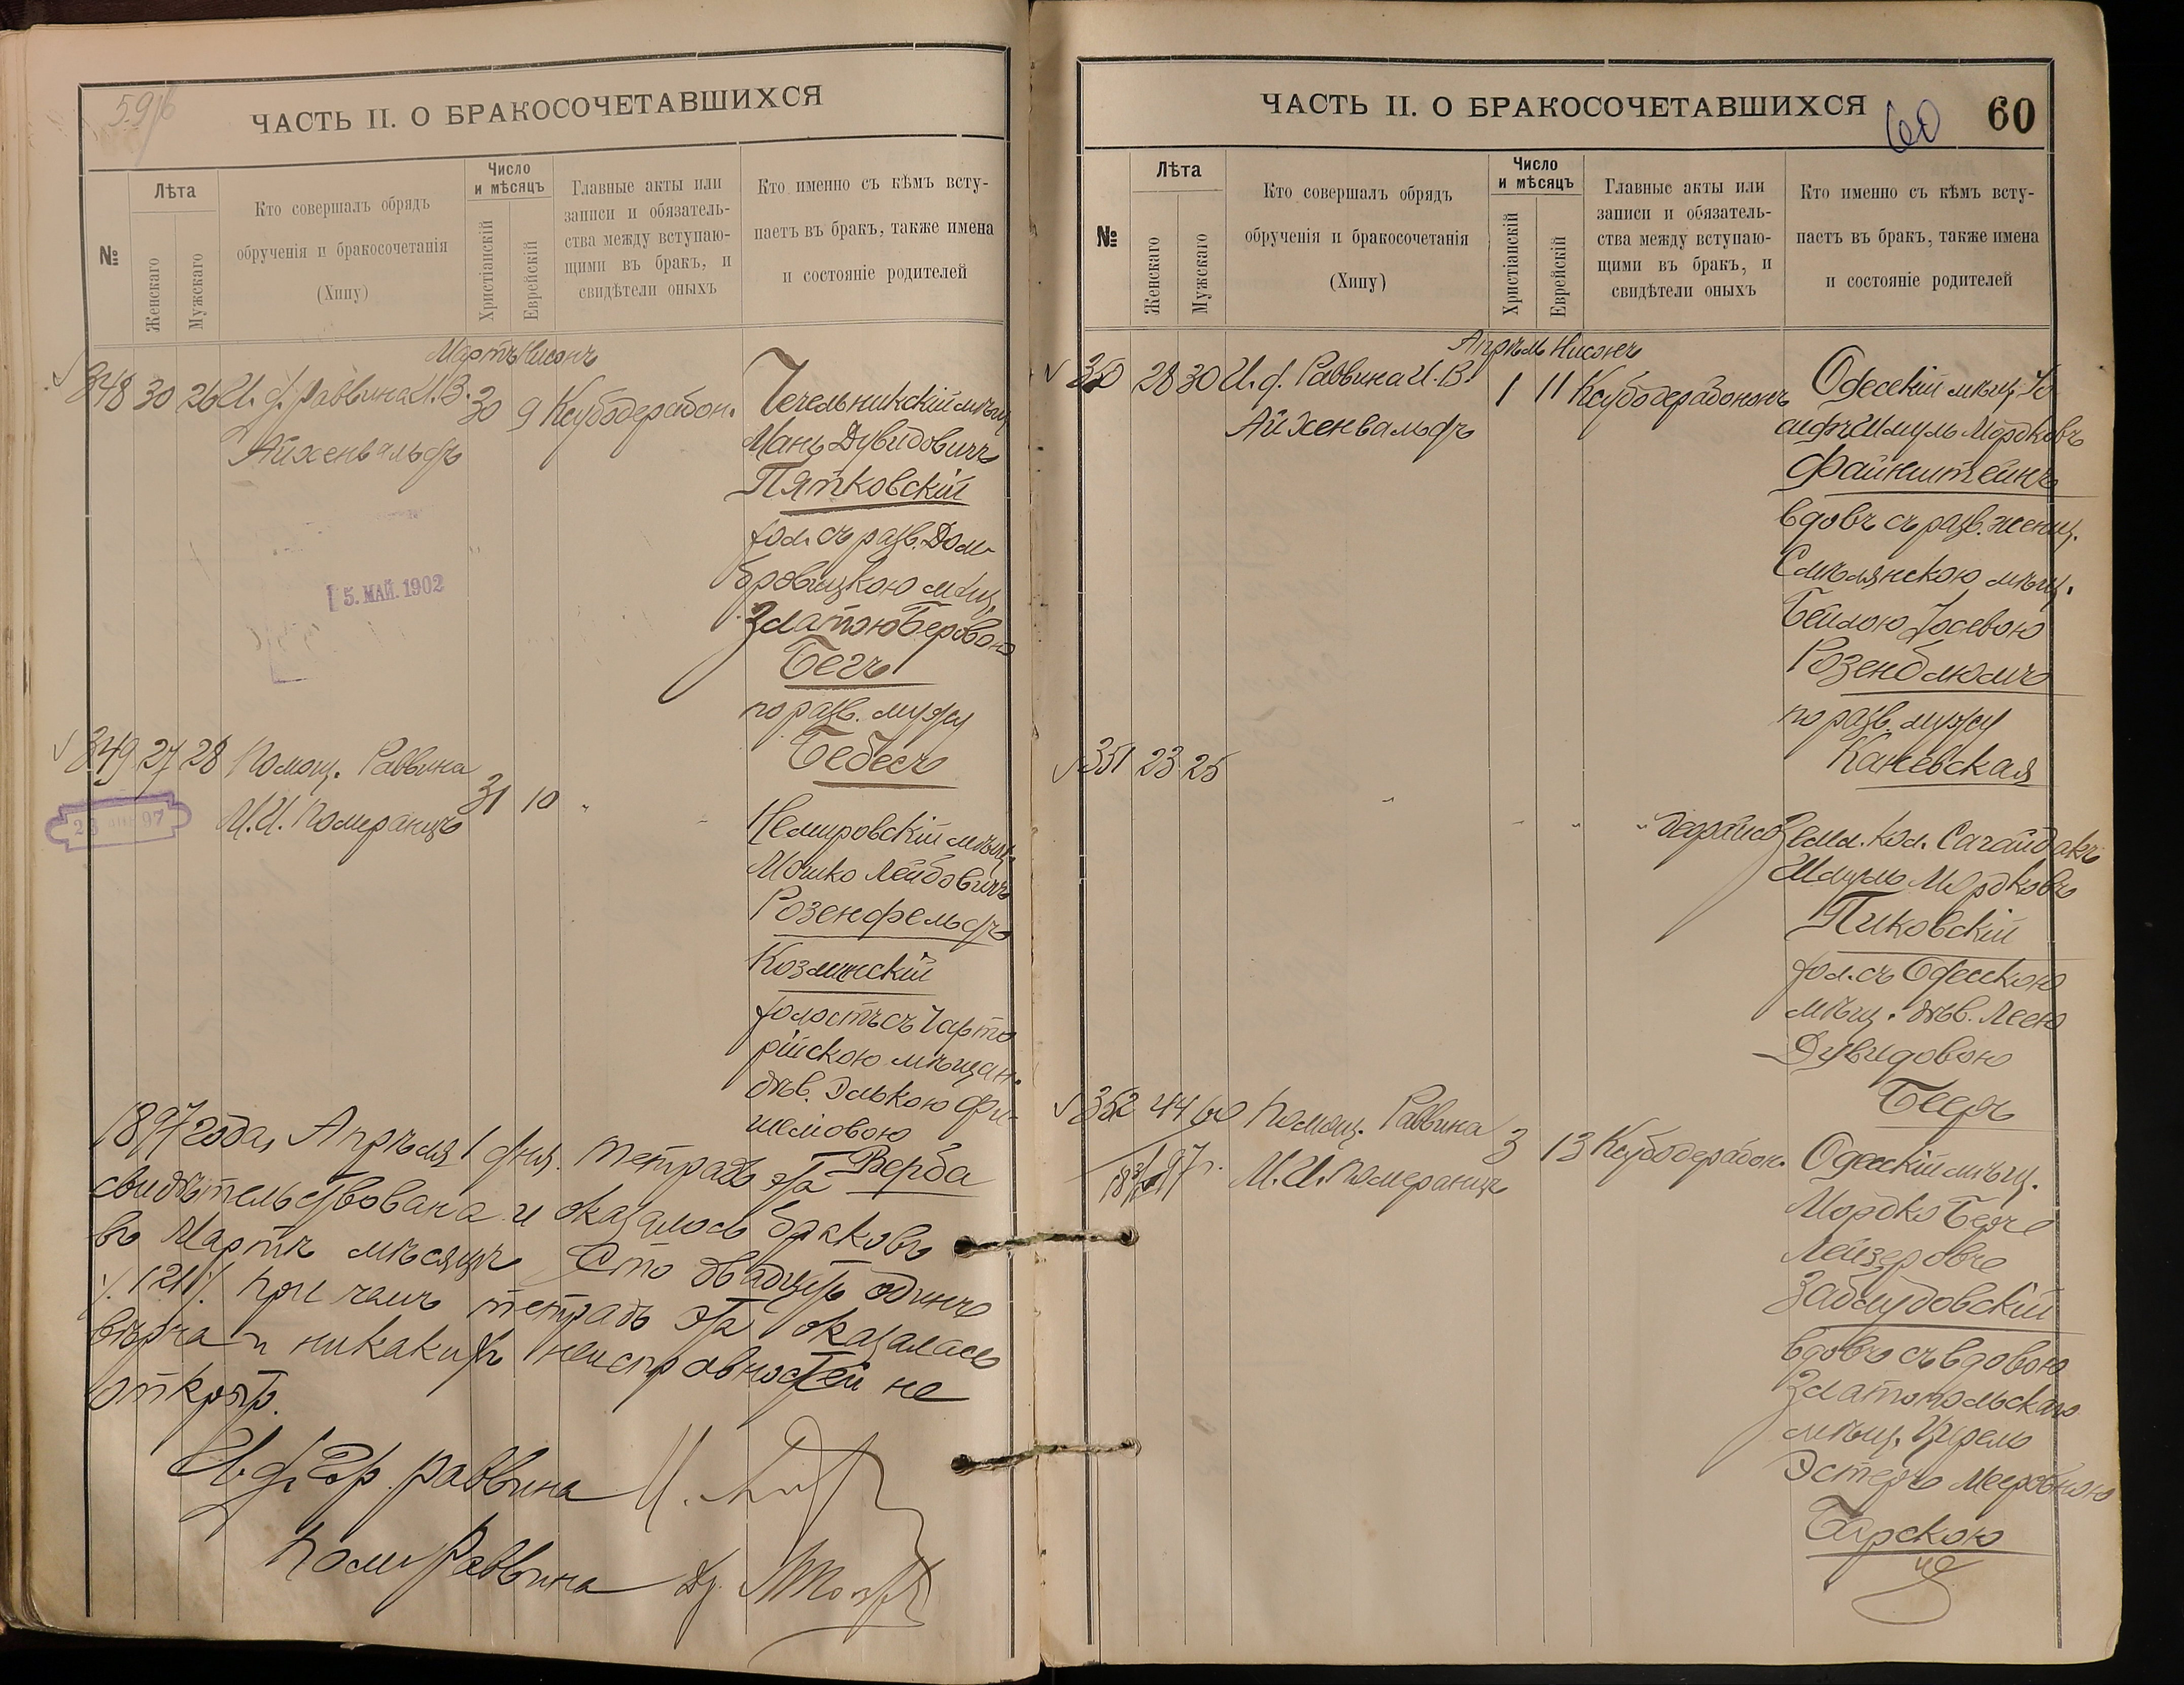 ЧАСТЬ II. О БРАКОСОЧЕТАВШИХСЯ
№
Лѣта
Женскаго
Мужскаго
Кто совершалъ обрядъ
обрученія и бракосочетанія
(Хипу)
Число
и мѣсяцъ
Христіанскій
Еврейскій
Главные акты или
записи и обязатель-
ства между вступаю-
щими въ бракъ, и
свидѣтели оныхъ
Кто именно съ кѣмъ всту-
паетъ въ бракъ, также имена
и состояніе родителей
Мартъ Нисонъ
348 30 26 И. ф. Раввина И.В. 30 9 Ксубодерабон.
Айхенвальдъ
Чечельникскій мѣщ.
Мань Дувидовичъ
Пятковскій
хол. съ разв. Дом-
бровицкою мѣщ.
Златою Беровою
Бегъ
по разв. мужу
Бебесъ
5. МАЙ. 1902
349 27 28 Помощ. Раввина
М.И. Померанцъ 31 10 "
Немировскій мѣщ.
Мошко Лейбовичъ
Розенфельдъ
Козминскій
холостъ съ Чарто
рійскою мѣщан.
дѣв. Элькою Фи-
шелiовою
Верба
1897 года, Апрѣля 1 дня. тетрадь эта
свидѣтельствована и оказалось браковъ
въ Мартѣ мѣсяцѣ Сто двадцать одинъ
/.121/. при чемъ тетрадь эта оказалась
вѣрна и никакихъ неисправностей не
открыто.
И. ф. Гор. раввина
Пом. Раввина
ЧАСТЬ II. О БРАКОСОЧЕТАВШИХСЯ
60
60
№
Лѣта
Женскаго
Мужскаго
Кто совершалъ обрядъ
обрученія и бракосочетанія
(Хипу)
Число
и мѣсяцъ
Христіанскій
Еврейскій
Главные акты или
записи и обязатель-
ства между вступаю-
щими въ бракъ, и
свидѣтели оныхъ
Кто именно съ кѣмъ всту-
паетъ въ бракъ, также имена
и состояніе родителей
Апрѣль Нисонъ
350 28 30 И. ф. Раввина И.В. 1 11 Ксубодерабононъ
Айхенвальдъ
Одесскій мѣщ. Іо
сифъ Шмуль Мордковъ
Файнштейнъ
вдовъ съ разв. женщ.
Смѣлянскою мѣщ.
Бейлою Іосевою
Розенблюмъ
по разв. мужу
Каневская
351 23 25
" " " "
Земл. Кол. Сагайдакъ
Шмуль Мордковъ
Пиковский
хол. съ Одесскою
мѣщ. дѣв. Леею
Дувидовою
Бееръ
352 44 60 Помощ. Раввина 3 13 Ксубодерабон.
М.И. Померанцъ
Одесскій мѣщ.
Мордко Беръ
Лейзеровъ
Заблудовскій
вдовъ съ вдовою
Златопольскаго
мѣщ.
Эстеръ Мееровною
Барскою